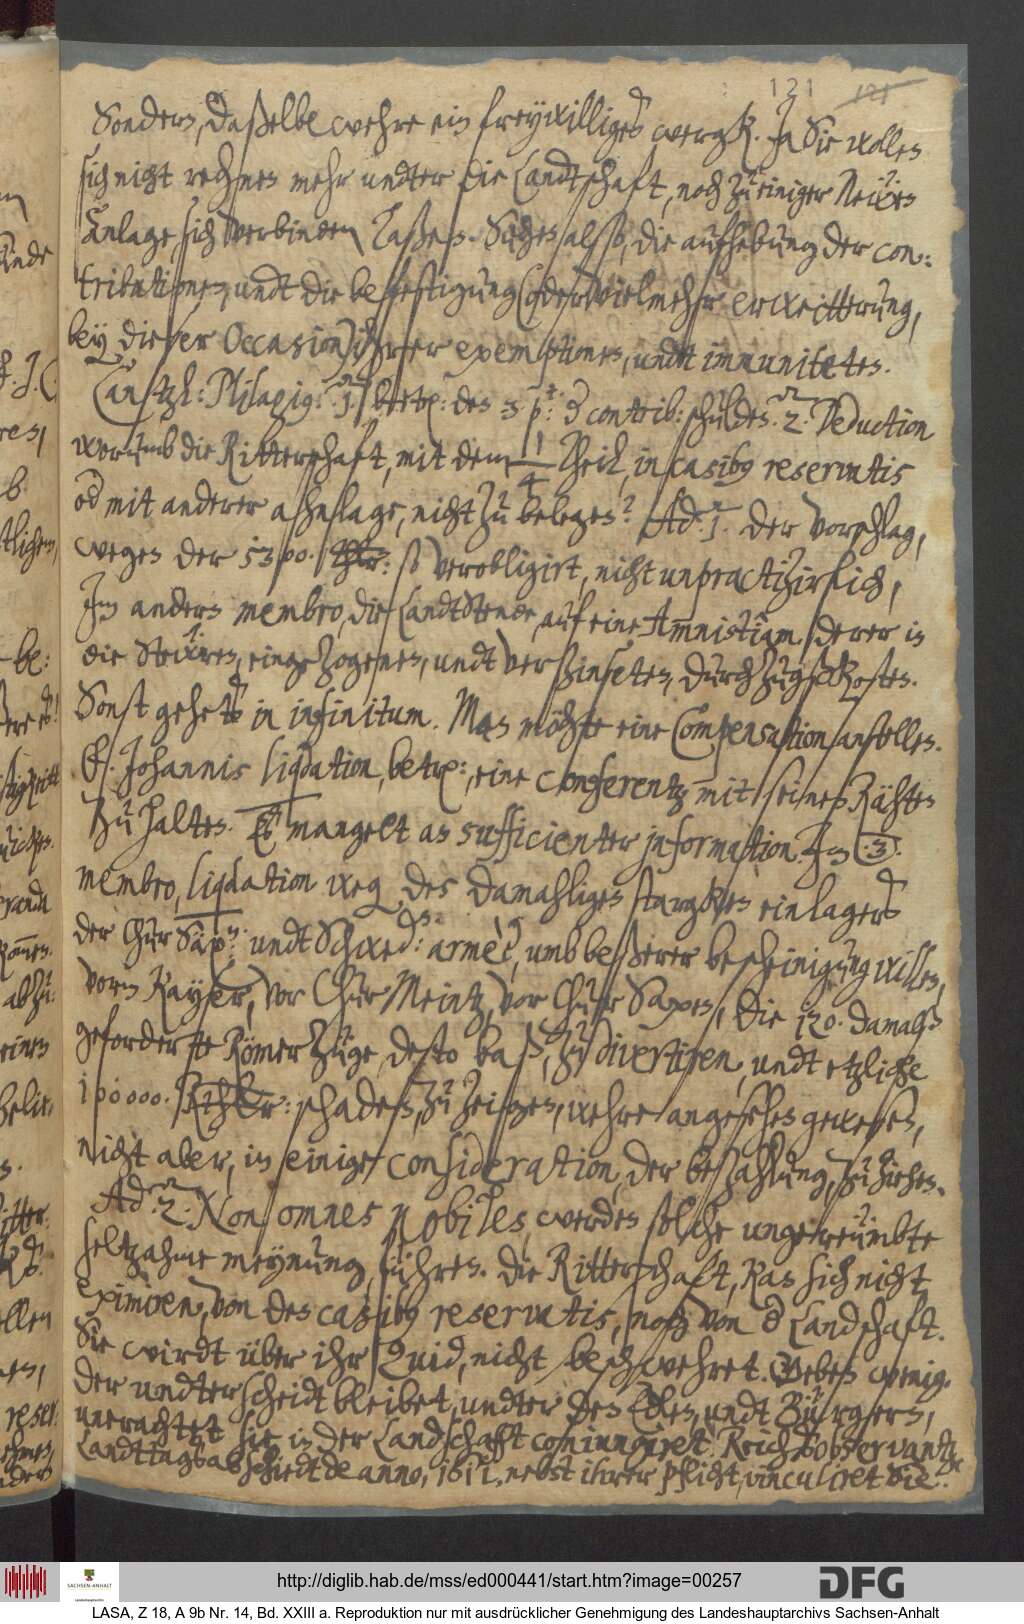 121 121
Sondern, daßelbe wehre ein freywilliges wergk. Ja Sie wollen
sich nicht rechnen mehr undter die Landtschafft, noch zu einiger Neuen
Anlage sich verbinden laßen. Suchen also, die aufhebung der con-
tributionen, undt die befestigung (oder vielmehr erweitterung,
bey dieser Occasion) ihrer exemptionen, undt immuniteten.
Cantzl: Milagig: 1. betr: des 3. p: contrib: schulden. 2. Deduction
worumb die Ritterschaft, mit dem 1/4 theil, in casibus reservatis
od mit anderer anlage, nicht zu belegen? Ad. 1. der Vorschlag,
wegen der 5300. Thlr: so verobligirt, nicht unpractizirlich,
Im andern membro, die LandtStende, auf eine Amnistiam derer in
die Stewren, eingezogenen, undt verzinseten, durchzugskosten.
Sonst gehets in infinitum. Man möchte eine Compensation anstellen.
F. Johannis liqdation, betr:, eine conferentz mit seinen Rähten
zu halten. Es mangelt an sufficienter information. Im 3.
membro, liqdation weg. des damahligen starcken einlagers
der Chur Säx: undt Schwed: armèe, umb beßerer bescheinigung willen,
vorm Kayser, vor Chur Meintz, vor Chur Saxen, die 120. damals
geforderte RömerZüge, desto baß, zu divertiren, undt etzliche
100000. Rthlr: schaden, zu zeigen, wehre angesehen gewesen,
nicht aber, in einige consideration, der bezahlung, zu ziehen.
Ad. 2. Non omnes Nobiles, werden solche ungereumbte
seltzahme meynung, führen. Die Ritterschaft, kan sich nicht
eximiren, von den casibus reservatis, noch von d Landschaft.
Sie wirdt über ihr Quid, nicht beschwehret. Geben wenig.
der undterscheidt bleibet, undter den Edlen, undt Bürgern,
unerachtet sie in der Landschafft Reichs observantz
Landttagsabschiedt de anno, 1611, nebst ihrer pflicht, vinculiret Sie.
http://diglib.hab.de/mss/ed000441/start.htm?image=00257
SACHSEN-ANHALT
DFG
LASA, Z 18, A 9b Nr. 14, Bd. XXIII a. Reproduktion nur mit ausdrücklicher Genehmigung des Landeshauptarchivs Sachsen-Anhalt